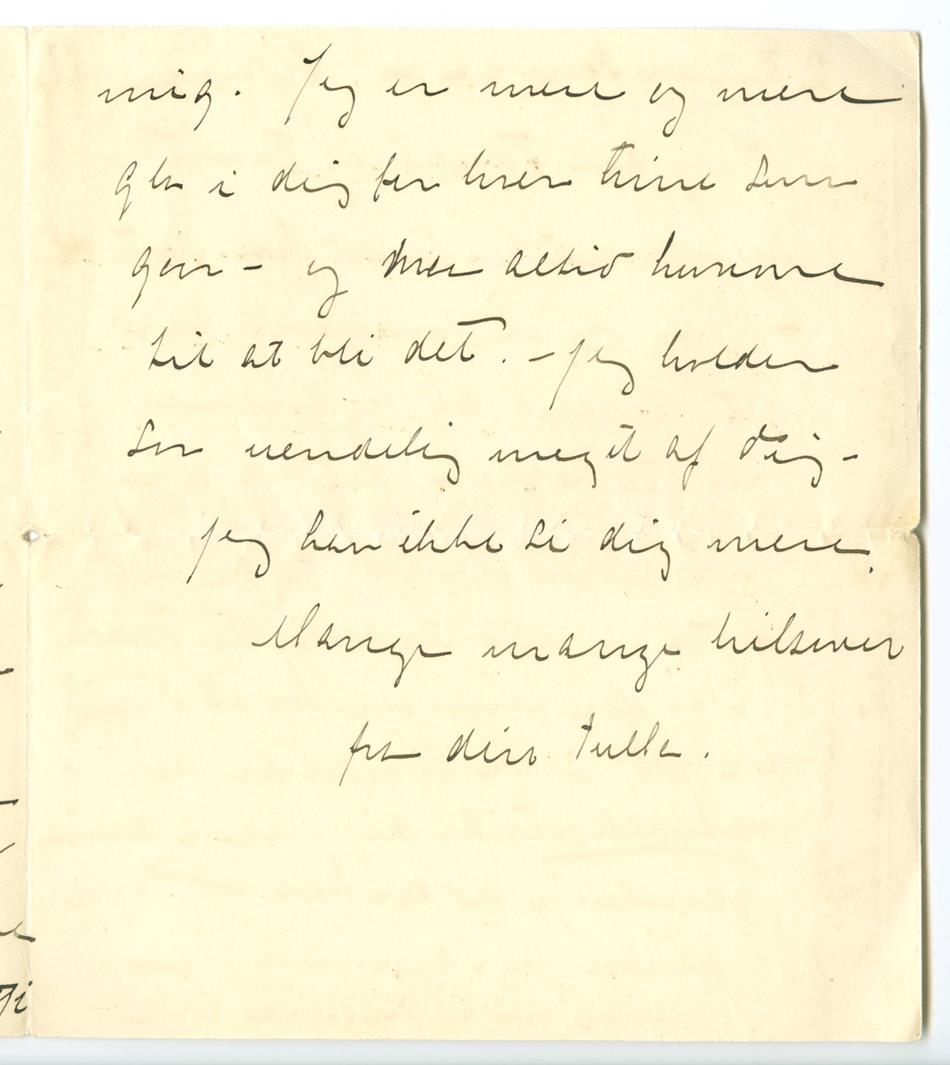 mig. Jeg er mere og mere
gla i dig for hver time som
gaar - og mer altid komme
til at bli det. - Jeg holder
saa uendelig meget af dig -
jeg kan ikke si dig mere.
Mange mange hilsener
fra din Tulla.